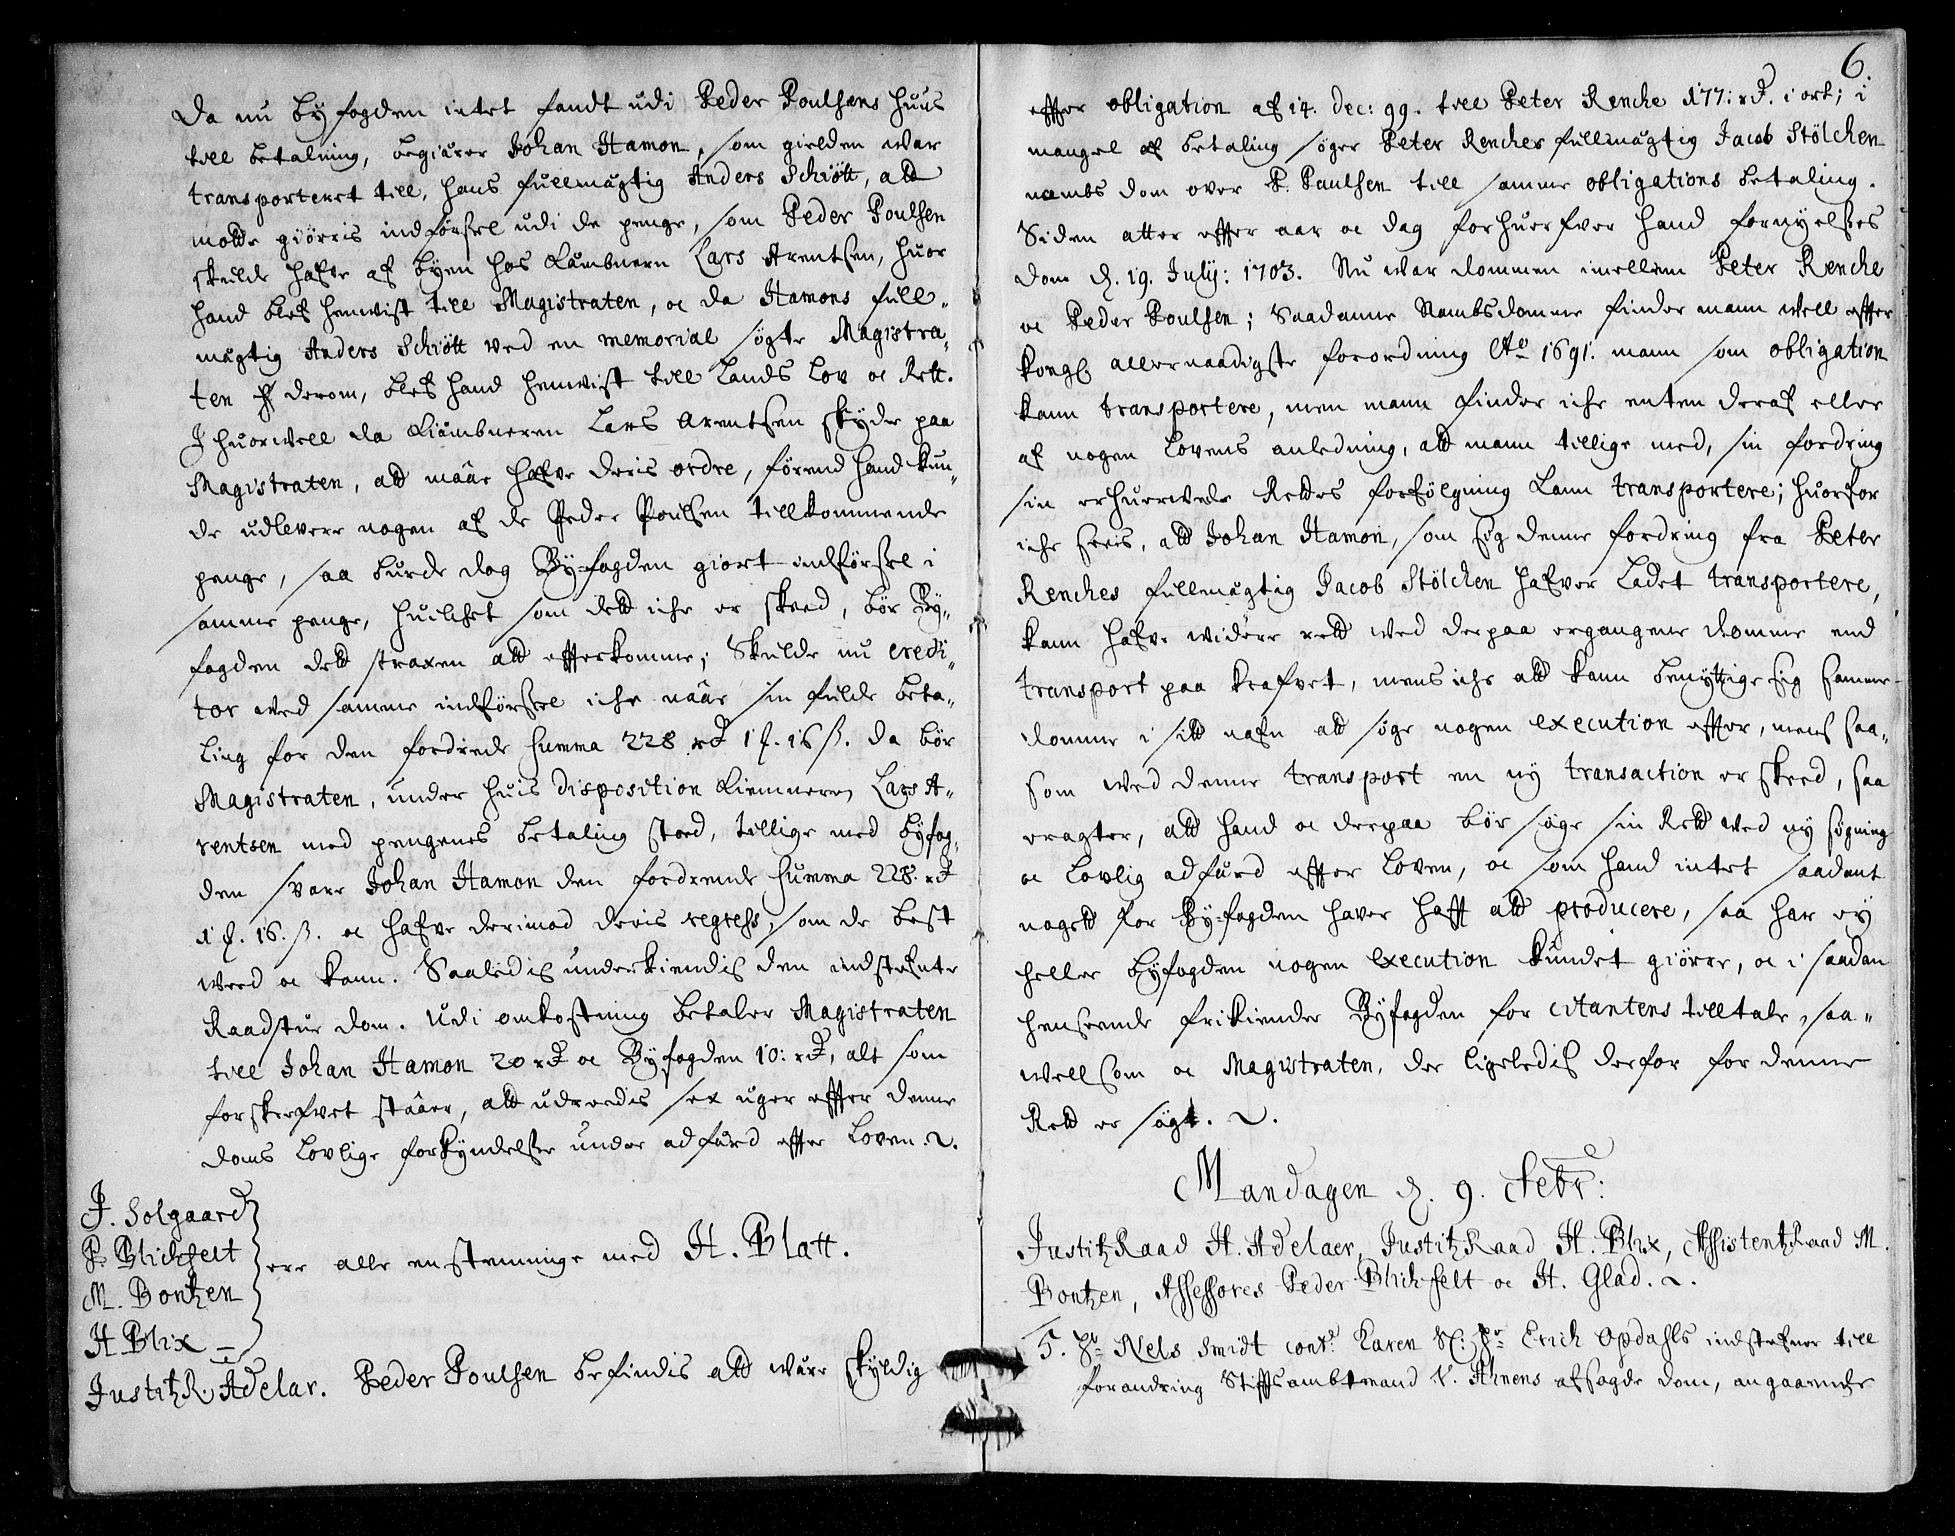 Da nu byfogden intet fandt udi Peder Poulsens huus
till betalning, begiærer Johan Hamon, som gielden war
transporteret till, hans fullmægtig Anders Schiøtt, att
motte giørris indførsel udi de penge, som Peder Poulsen
skulde hafve af byen hos Kæmbnern Lars Arentsen, huor
hand blef henwist till Magistraten, oc da Hamons full-
mægtig Anders Schiøtt ved en memorial søgte Magistra-
ten derom, blef hand henwist till Lands Lov oc Rett.
Ihuorwell da Kiæmbneren Lars Arentsen skyde paa
Magistraten, att maae hafve deris ordre, førend hand kun-
de udlevere nogen af de Peder Poulsen tillkommende
penge, saa burde dog Byfogden giort indførsel i
samme penge, huilchet som dett iche er skeed, bør By-
fogden dett straxen att efterkomme; Skulde nu credi-
tor wed samme indførsel iche naae sin fulde beta-
ling for den fordrede summa 228 rd 1 ℓ. 16 ß. da bør
Magistraten, under huis disposition Kiemneren Lars A-
rentsen med pengenes betaling stoed, tillige med byfog-
den svare Johan Hamon den fordrende summa 228. rd
1 ℓ. 16. ß. oc hafve derimod deris regress, som de best
weed oc kann. Saaledis underkiendis den indstefnte
Raadstue dom. Udi omkostning betaler Magistraten
till Johan Hamon 20 rd oc Byfogden 10: rd, alt som
forskrefvet staaer, att udreedis sex uger efter denne
doms lovlige forkyndelse under adfærd efter Loven.
J. Solgaard
P. Blichfelt
M. Bontzen
H Blix
ere alle enstemmige med H. Blatt.
JustitzR. Adelar. Peder Poulsen befindis att være skyldig
6.
efter obligation af 14. Dec: 99. till Peter Renche 177: rd. 1 ort; i
mangel af betaling søger Peter Renches fullmægtig Jacob Stölchen
nambs dom over P. Paulsen till samme obligations betaling.
Siden atter efter aar oc dag forhuerfver hand fornyelses
dom d. 19. July: 1703. Nu war dommen imellem Peter Renche
oc Peder Poulsen; Saadanne Nambsdomme finder mann well efter
kongl allernaadigste forordning Ao 1691. mann som obligation
kann transportere, men mann finder iche enten deraf eller
af nogen Lovens anledning, att mann tillige med, sin fordring
sin erhuerwede Rettes forfølgning kann transportere; huorfor
iche sees, att Johan Hamon, som sig denne fordring fra Peter
Renches fullmægtig Jacob Stölchen hafver ladet transportere,
kann hafve widere rett wed derpaa ergangene domme end
transport paa krafvet, mens iche att kann benyttige sig samme
domme i sitt nafn att søge nogen execution efter, mens saa-
som wed denne transport en ny transaction er skeed, saa
eragter, att hand oc derpaa bør søge sin Rett wed ny søgning
oc lovlig adfærd efter Loven, oc som hand intet saadant
nogett for Byfogden haver hafft att producere, saa har ey
heller byfogden nogen execution kundet giøre, oc i saadan
henseende frikiender Byfogden for citantens tilltale, saa-
well som oc Magistraten, der ligeledis derfor for denne
Rett er søgt.
Mandagen d. 9. Febr:
JustitzRaad H. Adelaer, JustitzRaad H. Blix, AssistentzRaad M.
Bontzen, Assessores Peder Blichfelt oc H. Glad.
5. Sr Nels Smidt contr. Karen Sl: Sr Erich Opdahls indstefner till
forandring Stiftsambtmand V. Ahnens afsagde dom, angaaende